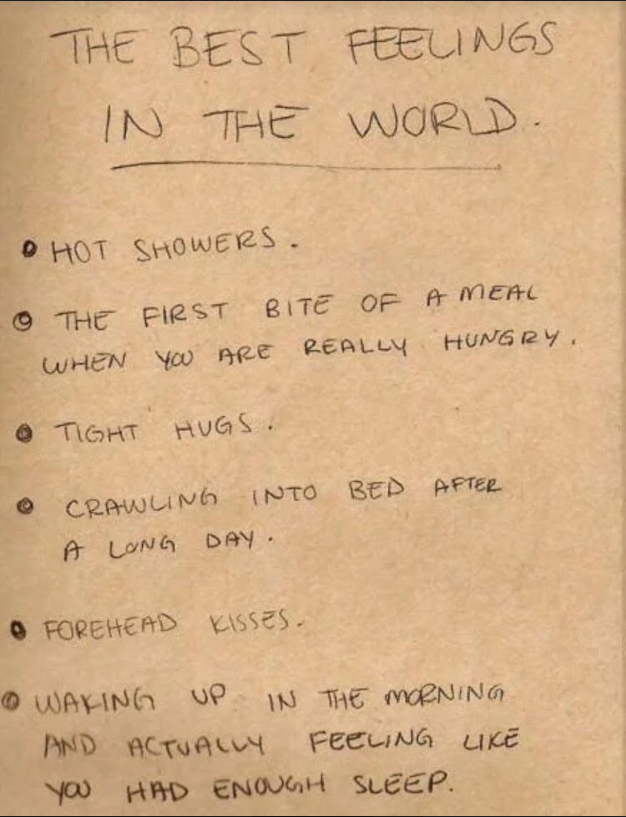 THE BEST FEELINGS
IN THE WORLD.
• HOT SHOWERS.
• THE FIRST BITE OF A MEAL
WHEN YOU ARE REALLY HUNGRY.
• TIGHT HUGS.
• CRAWLING INTO BED AFTER
A LONG DAY.
• FOREHEAD KISSES.
• WAKING UP IN THE MORNING
AND ACTUALLY FEELING LIKE
YOU HAD ENOUGH SLEEP.